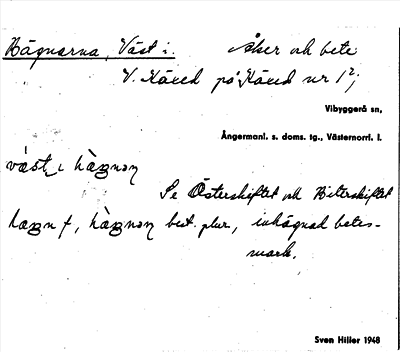 Hägnarna, Väst i. Åker och bete
V. Käxed på Käxed nr 1²;
Vibyggerå sn,
Ångermanl. s. doms. tg., Västernorrl. l.
väst i hàgnan
Se Österskiftet och
hagn f, hàgnan best. plur., inhägnad betes-
mark.
Sven Hiller 1948